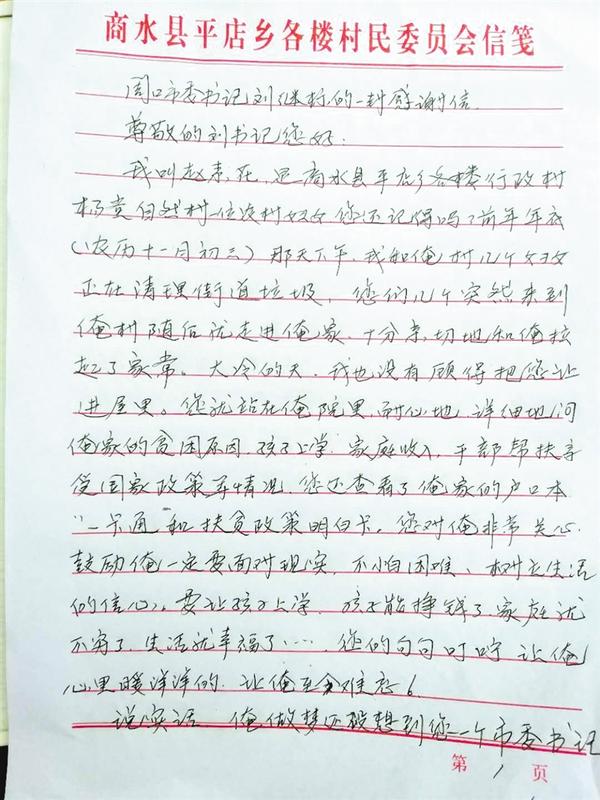 商水县平店乡各楼村民委员会信笺
周口市委书记刘继标的一封感谢信
尊敬的刘书记您好:
我叫赵素花,是商水县平店乡各楼行政村
杨营自然村一位农村妇女您还记得吗?前年年底
(农历十一月初三)那天下午,我和俺村几个妇女
正在清理街道垃圾,您们几个突然来到
俺村随后就走进俺家,十分亲切地和俺拉
起了家常。大冷的天,我也没有顾得把您让
进屋里。您就站在俺院里,耐心地、详细地问
俺家的贫困原因,孩子上学,家庭收入,干部帮扶享
受国家政策等情况,您还查看了俺家的户口本
“一卡通和扶贫政策明白卡。您对俺非常关心
鼓励俺一定要面对现实,不怕困难、树立生活
的信心,要让孩子上学,孩子能挣钱了,家庭就
不穷了,生活就幸福了……您的句句叮咛让俺
心里暖洋洋的,让俺至今难忘。
说实话,俺做梦还没想到您一个市委书记
第1页